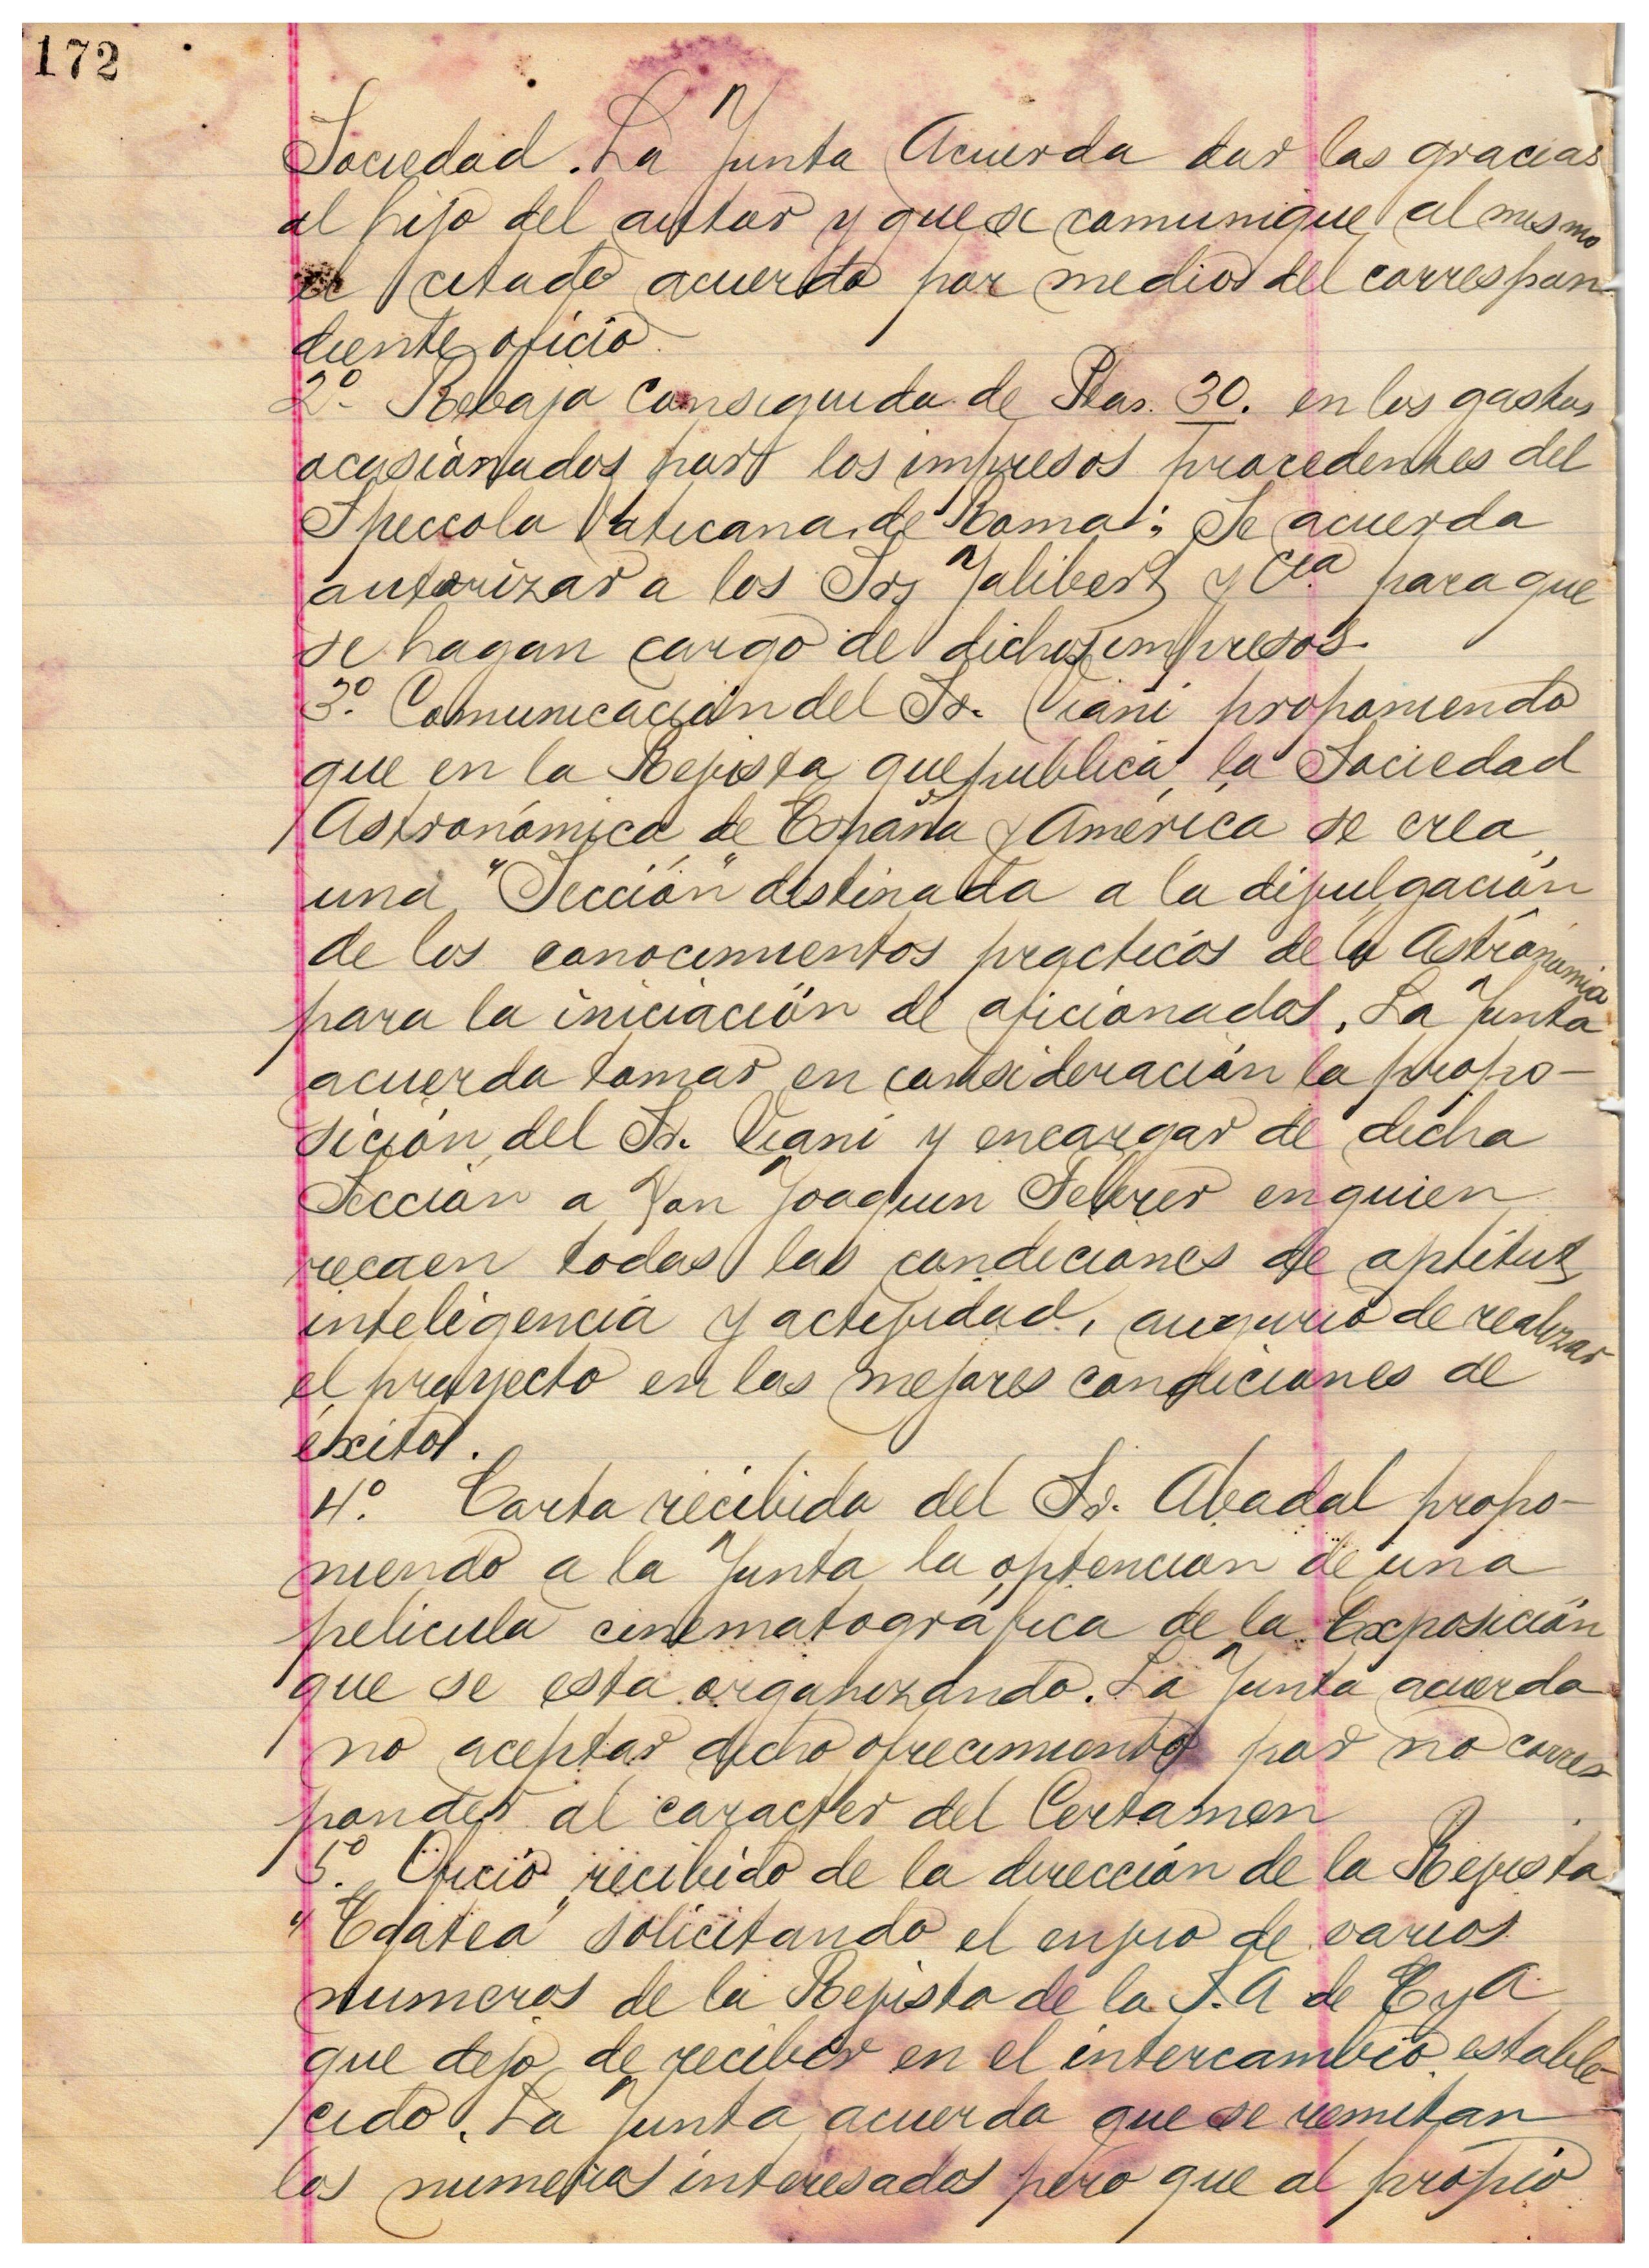 172
Sociedad. La Junta Acuerda dar las gracias
al hijo del autor y que se comunique al mismo
el citado acuerdo por medio del correspon
diente oficio.
2º. Rebaja conseguida de Ptas. 30. en los gastos
ocasionados por los impresos procedentes del
Speccola Vaticana de Roma; Se acuerda
autorizar a los Srs Jalibert y Cia para que
se hagan cargo de dichos impresos.
3º. Comunicación del Sr. Viani proponiendo
que en la Revista que publica la Sociedad
Astronómica de España y América se crea
una "Sección" destinada a la divulgación
de los conocimientos practicos de la Astronomia
para la iniciación de aficionados. La Junta
acuerda tomar en consideración la propo-
sición del Sr. Viani y encargar de dicha
Sección a Don Joaquin Febrer en quien
recaen todas las condiciones de aptitut,
inteligencia y actividad, augurio de realizar
el proyecto en las mejores condiciones de
éxito.
4º. Carta recibida del Sr. Abadal propo-
niendo a la Junta la optencion de una
pelicula cinematográfica de la Exposición
que se esta organizando. La Junta acuerda
no aceptar dicho ofrecimiento por no corres
ponder al caracter del Certamen
5º. Oficio recibido de la dirección de la Revista
"Edatea" solicitando el envio de varios
numeros de la Revista de la S.A de E y A
que dejo de recibir en el intercambio estable
cido. La Junta acuerda que se remitan
los numeros interesados pero que al propio